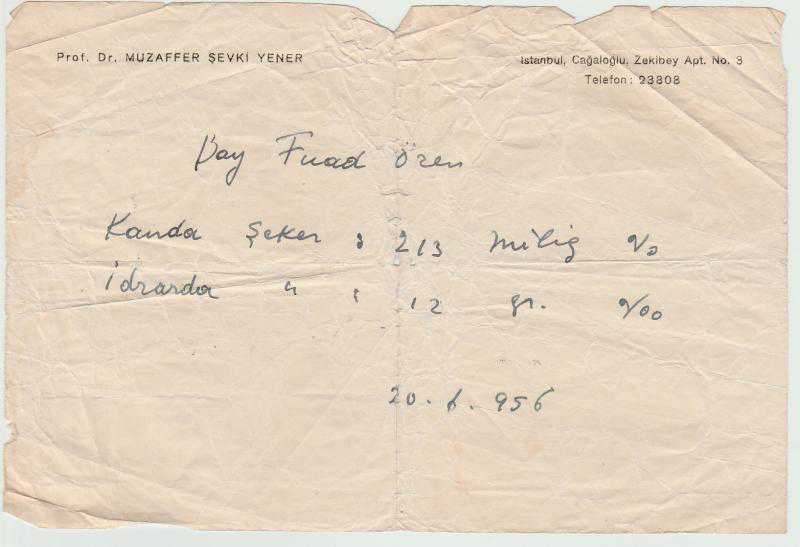 Prof. Dr. MUZAFFER ŞEVKİ YENER
İstanbul, Cağaloğlu, Zekibey Apt. No. 3
Telefon: 23808
Bay Fuad Ören
Kanda Şeker : 213 milig %
İdrarda " : 12 gr. ‰
20.6.956